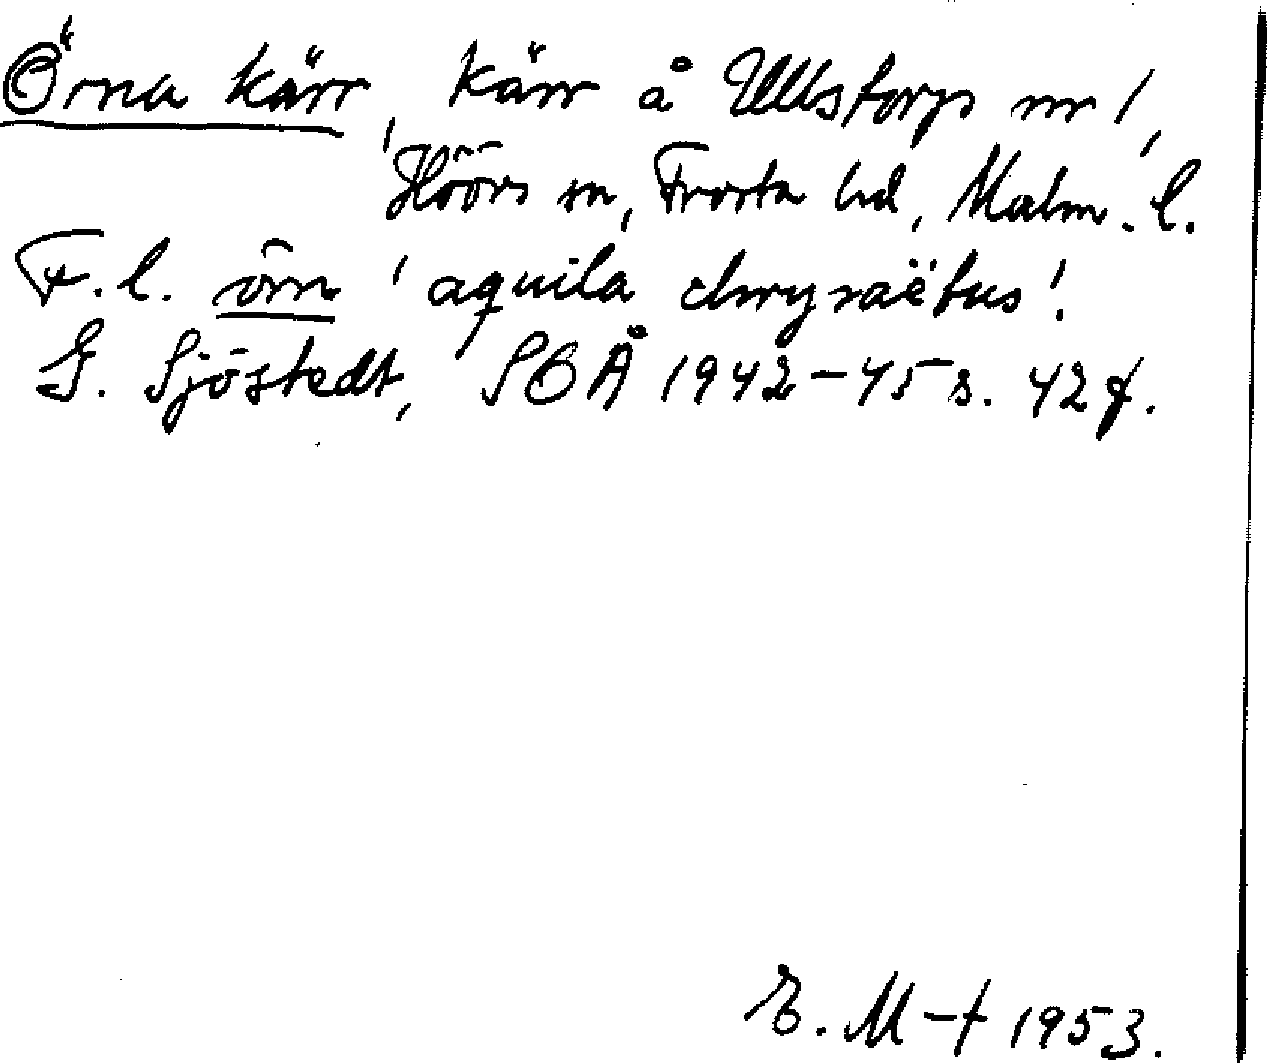 Örna kärr, kärr å Ullstorps nr 1,
Höörs sn, Frosta hd, Malm. l.
F. l. örn 'aquila chrysaëtus'.
G. Sjöstedt, SOÅ 1942–45 s. 42 f.
E. M–t 1953.